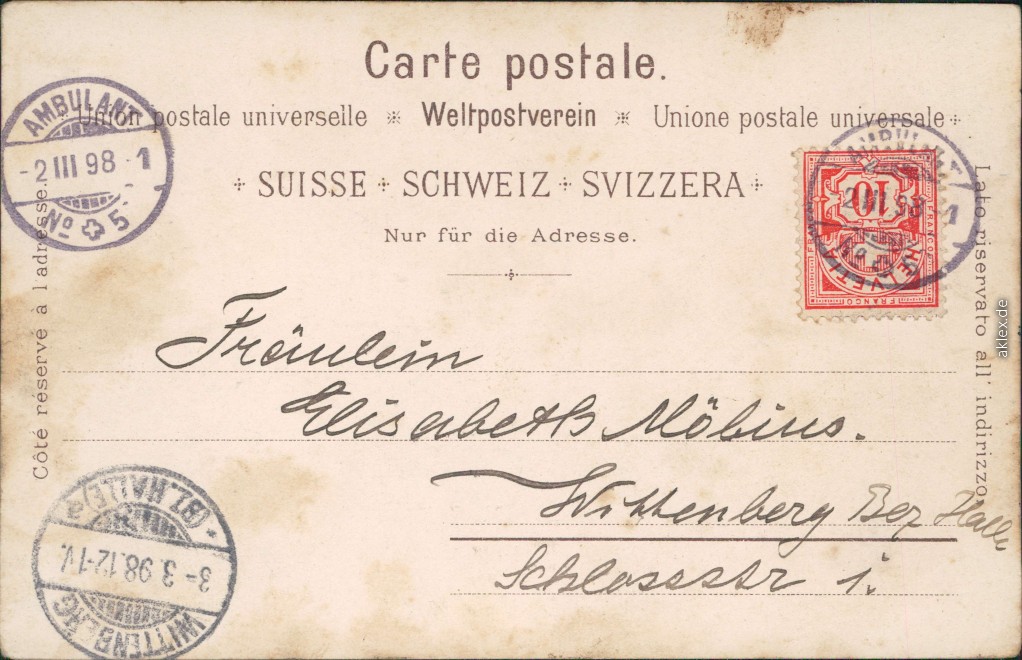 Carte postale.
Union postale universelle ※ Weltpostverein ※ Unione postale universale
SUISSE + SCHWEIZ + SVIZZERA
Nur für die Adresse.
Côté réservé à l'adresse.
Lato riservato all' indirizzo.
AMBULANT
-2 III 98-1
No 5
AMBULANT
2 III 98-1
10
FRANCO
HELVETIA
FRANCO
Fräulein
Elisabeth Möbius.
Wittenberg Bez Halle
Schlossstr 1.
WITTENBERG
3-3.98.12-1V.
(BZ. HALLE)
aklex.de